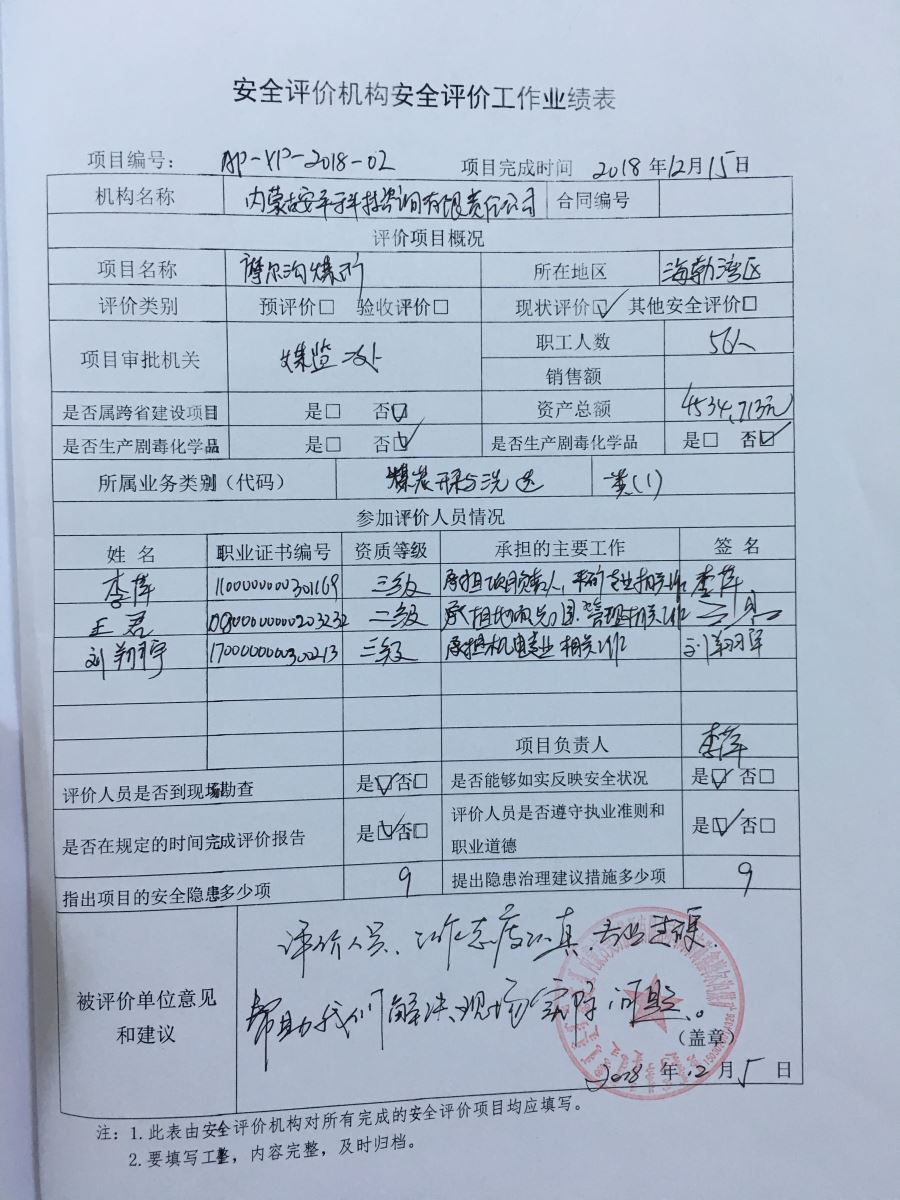 安全评价机构安全评价工作业绩表
项目编号： AP-XP-2018-02 项目完成时间 2018年12月15日
机构名称 内蒙古安平科技咨询有限责任公司 合同编号
评价项目概况
项目名称 摩尔沟煤矿 所在地区 海勃湾区
评价类别 预评价□ 验收评价□ 现状评价☑ 其他安全评价□
项目审批机关 煤监 职工人数 56人
销售额
是否属跨省建设项目 是□ 否☑ 资产总额 4534.713元
是否生产剧毒化学品 是□ 否☑ 是否生产剧毒化学品 是□ 否☑
所属业务类别（代码） 煤炭开采与洗选 一类(1)
参加评价人员情况
姓 名 职业证书编号 资质等级 承担的主要工作 签 名
李萍 1100000000301169 三级 承担项目负责人、采矿专业相关工作 李萍
王君 0800000000203232 二级 承担地质、管理相关工作 王君
刘翔宇 1700000000300213 三级 承担机电专业相关工作 刘翔宇
项目负责人 李萍
评价人员是否到现场勘查 是☑否□ 是否能够如实反映安全状况 是☑否□
是否在规定的时间完成评价报告 是☑否□ 评价人员是否遵守执业准则和
职业道德 是☑否□
指出项目的安全隐患多少项 9 提出隐患治理建议措施多少项 9
被评价单位意见
和建议
评价人员、工作态度认真、专业过硬.
帮助我们解决现场实际问题。
（盖章）
2018 年 12 月 5 日
注：1.此表由安全评价机构对所有完成的安全评价项目均应填写。
2.要填写工整，内容完整，及时归档。